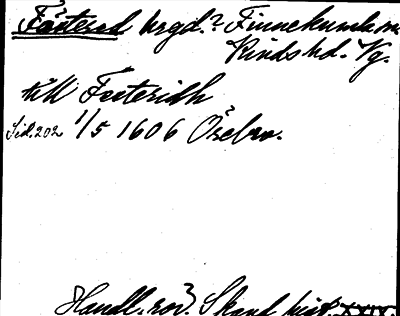 Fästered hrgd.? Finnekumla sn.
Kinds hd. Vg.
till Festeridh
Sid. 202 1/5 1606 Örebro.
Handl. rör. Skand. hist. XXIX.